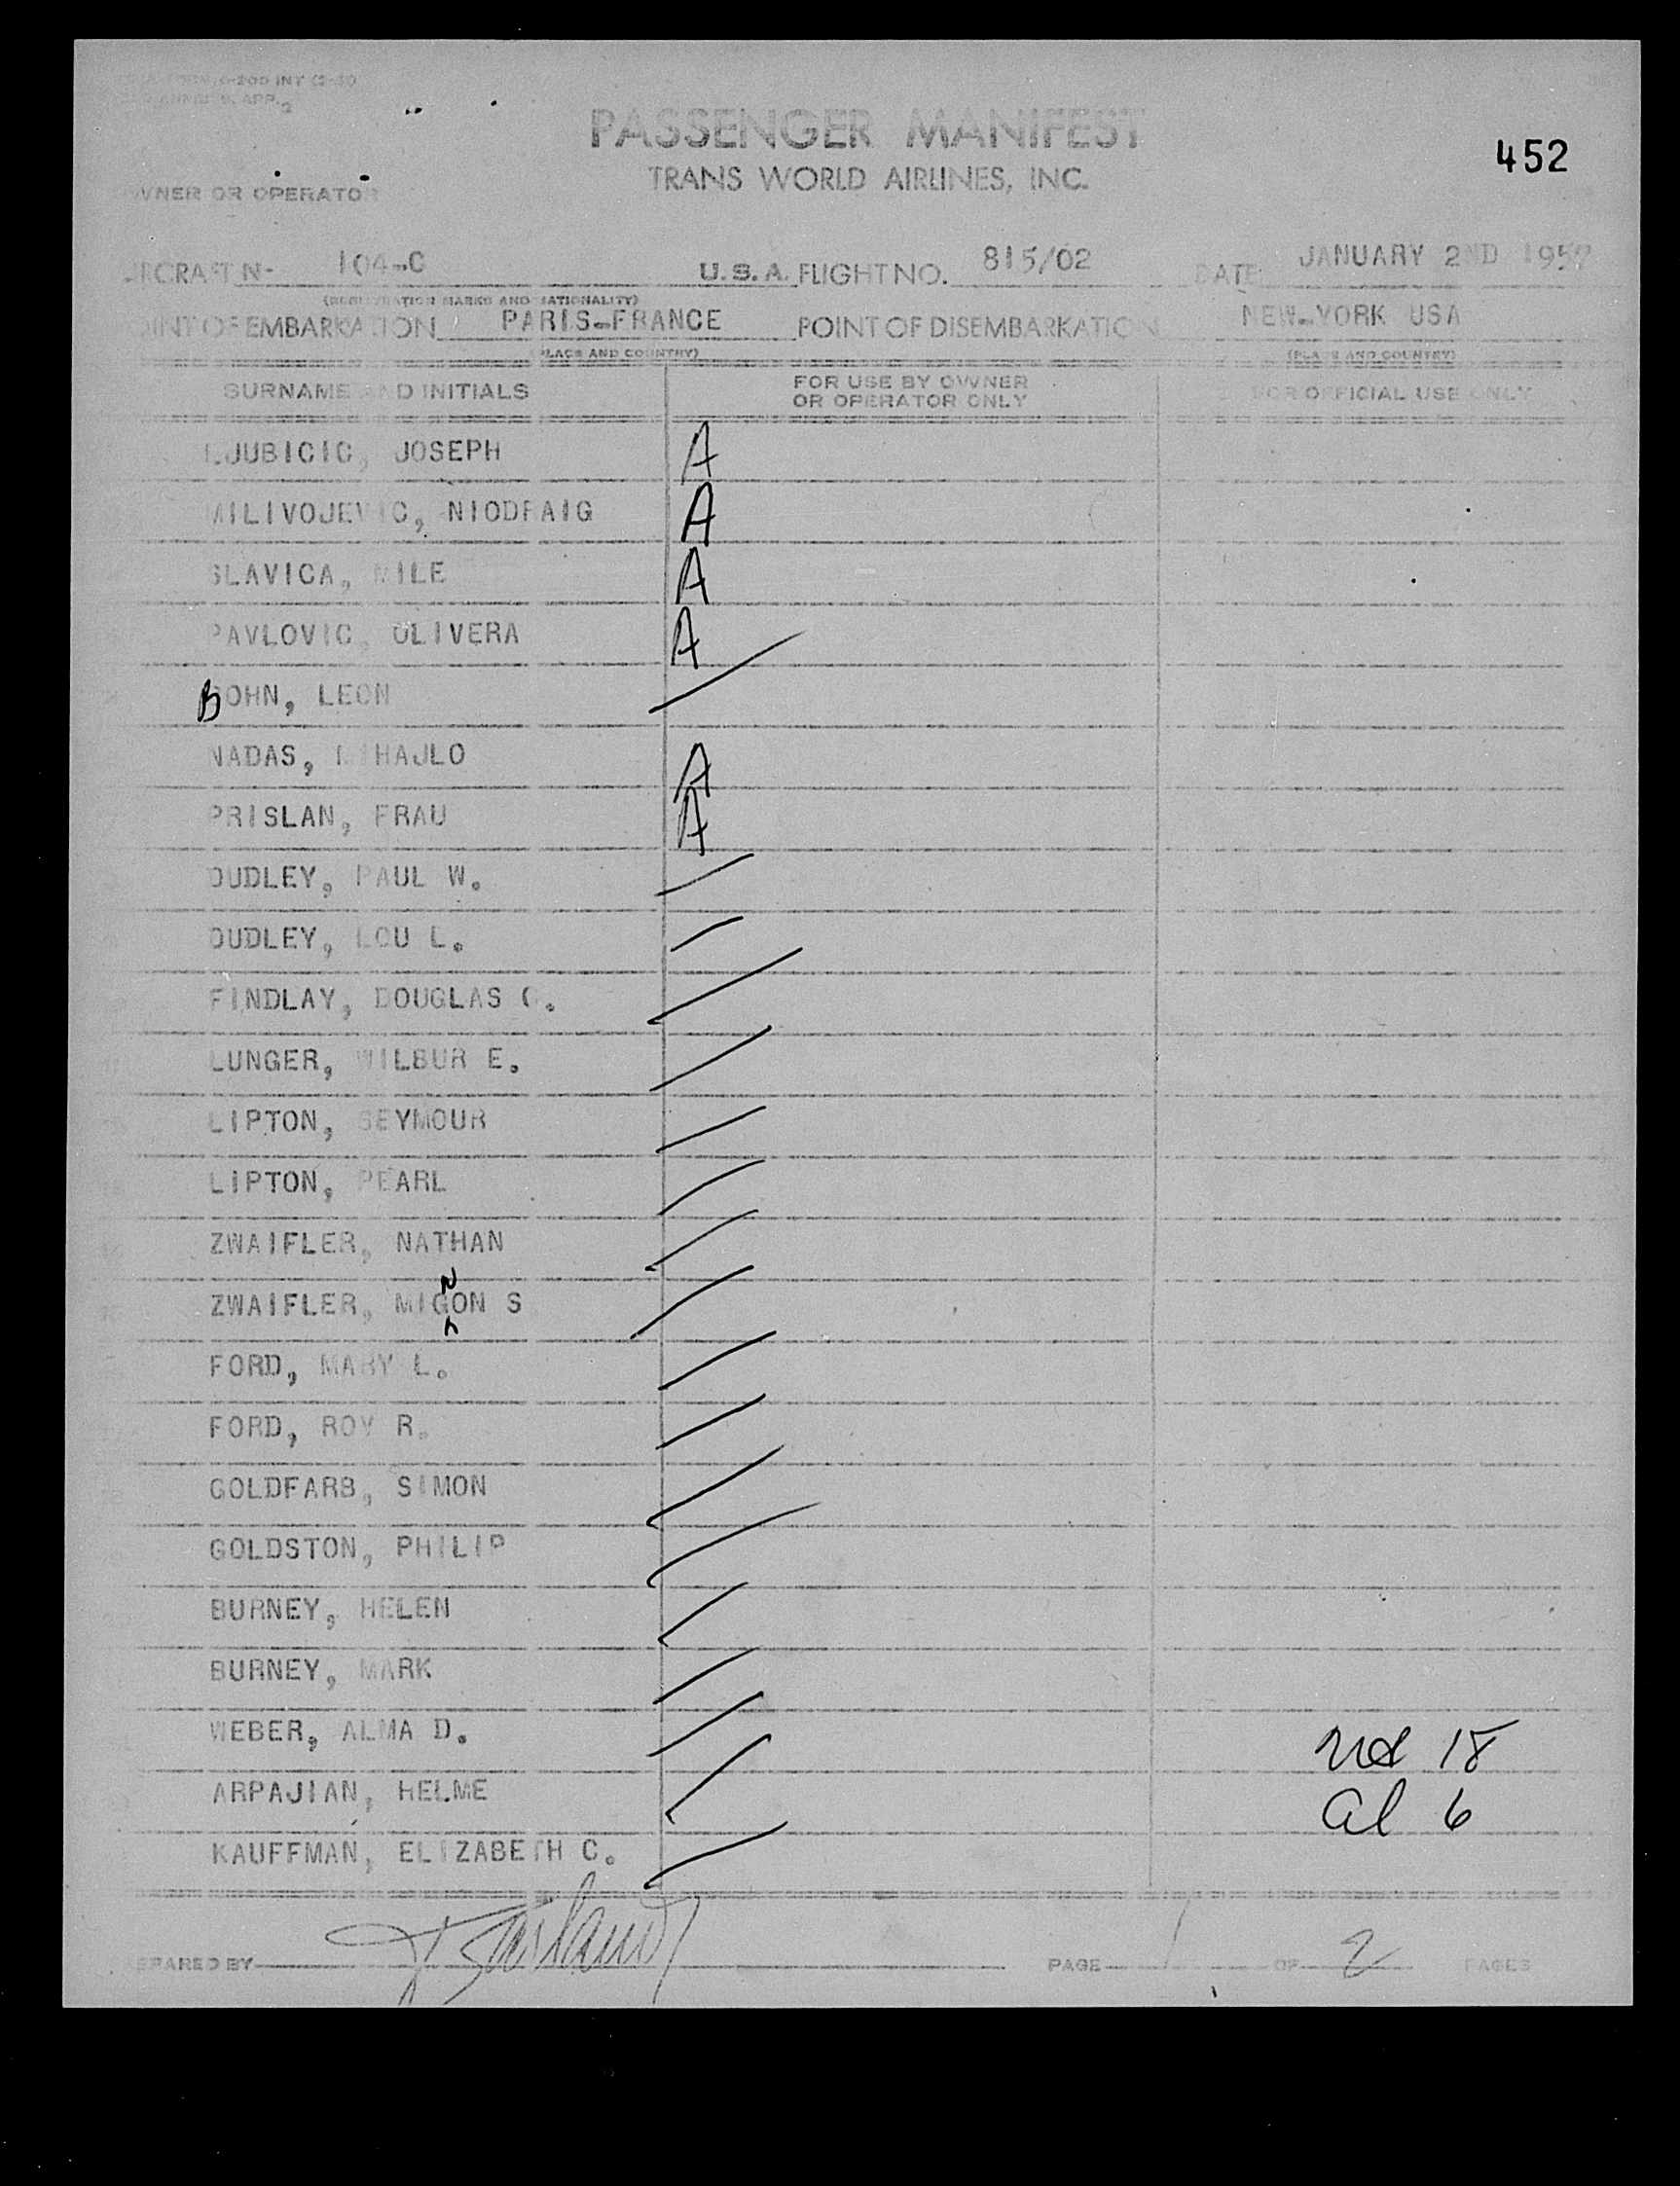 PASSENGER MANIFEST
452
TRANS WORLD AIRLINES, INC.
OWNER OR OPERATOR
AIRCRAFT N- 104-C U.S.A. FLIGHT NO. 815/02 DATE JANUARY 2ND
(REGISTRATION MARKS AND NATIONALITY)
POINT OF EMBARKATION PARIS-FRANCE POINT OF DISEMBARKATION NEW-YORK USA
(PLACE AND COUNTRY) (PLACE AND COUNTRY)
SURNAME AND INITIALS FOR USE BY OWNER OR OPERATOR ONLY FOR OFFICIAL USE ONLY
LJUBICIC, JOSEPH A
MILIVOJEVIC, NIODRAIG A
SLAVICA, MILE A
PAVLOVIC, OLIVERA A
BOHN, LEON
NADAS, MIHAJLO A
PRISLAN, FRAU A
DUDLEY, PAUL W.
DUDLEY, LOU L.
FINDLAY, DOUGLAS
LUNGER, WILBUR E.
LIPTON, SEYMOUR
LIPTON, PEARL
ZWAIFLER, NATHAN
ZWAIFLER, MIGNON S
FORD, MARY L.
FORD, ROY R.
GOLDFARB, SIMON
GOLDSTON, PHILIP
BURNEY, HELEN
BURNEY, MARK
WEBER, ALMA D. 18
ARPAJIAN, HELME al 6
KAUFFMAN, ELIZABETH C.
PREPARED BY PAGE 1 OF 2 PAGES